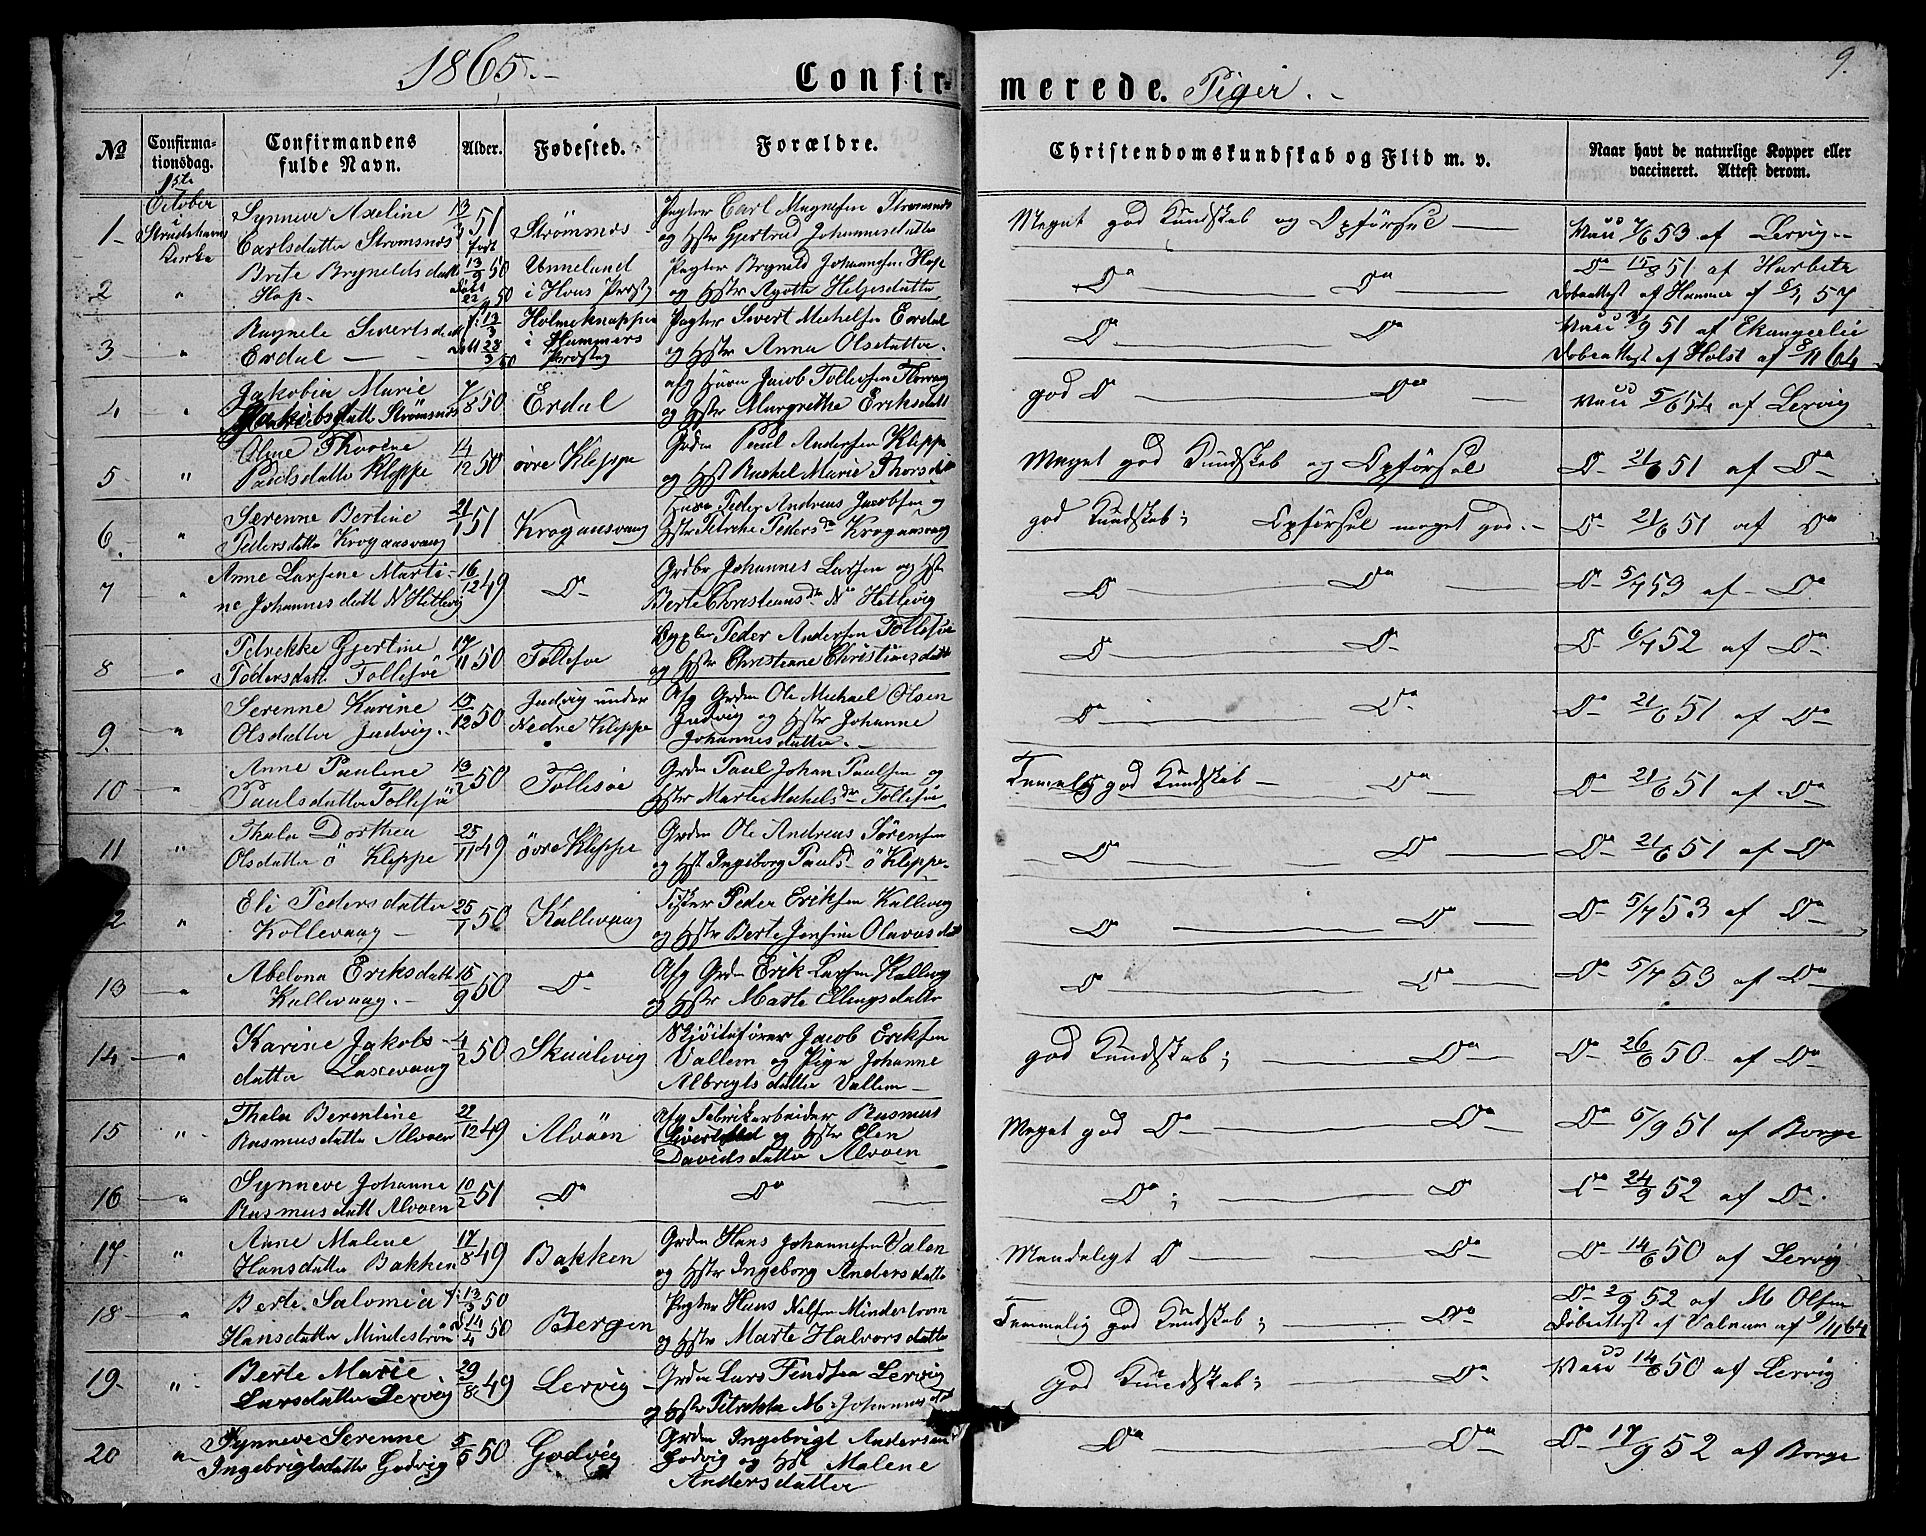 1865.
Confir-
merede. Piger.
9.
No
Confirma-
tionsdag.
Confirmandens
fulde Navn.
Alder.
Fødested.
Forældre.
Christendomskundskab og Flid m. v.
Naar havt de naturlige Kopper eller
vaccineret. Attest derom.
1ste
October
i
Kirke
1
Synneve Axeline
Carlsdatter Strømsnes
13/3 51
Strømsnes
Pagter Carl Magnesen Strømsnes
og Hstr Gjertrud Johannesdatter
Meget god Kundskab og Opførsel
Vacc 7/6 53 af Lervig
2
Brite Brynelds datt
Hop
født
13/9 50
døbt
22/9 50
Unneland
i Hous Præstg
Pagter Bryneld Johannesen Hop
og Hstr Agotte Helgesdatter
Do Do
Do 15/8 51 af Harbitz
Dobeattest af Hammer af 6/4 57
3
Ragnele Sivertsdatt
Erdal
f. 13/3
døbt 28/3 50
Holmeknappen
i Hammers
Præstg
Pagter Sivert Michelsen Erdal
og Hstr Anna Olsdatter
Do Do
Vacc 3/9 51 af Ekangerlie
Dobeattest af Holst af 8/11 64
4
Jakobin Marie
Jakobsdatter Strømsnes
7/8 50
Erdal
afg Huusm Jacob Tollevsen Florvaag
og Hstr Margrethe Eriksdatt
god Do Do
Vacc 5/6 54 af Lervig
5
Oline Thorine
Paulsdatter Kleppe
14/12 50
øvre Kleppe
Grdm Paul Andersen Kleppe
og Hst Rachel Marie Thorsdtr
Meget god Kundskab og Opførsel
Do 21/6 51 af Do
6
Serenne Bertine
Pedersdatter Krogaasvaag
21/1 51
Krogaasvaag
Huusm Peder Andreas Jacobsen og
Hstr Petrike Peders dr Krogaasvaag
god Kundskab; Opførsel meget god.
Do 21/6 51 af Do
7
Anne Larsene Marti-
ne Johannesdatt N Hetlevig
16/12 49
Do
Grdbr Johannes Larsen og Hst
Berte Christians dr No Hetlevig
Do Do
Do 5/7 53 af Do
8
Petrekke Gjertine
Pedersdatt Follesøe
17/11 50
Follesøe
Peder Andersen Follesøe
og Hstr Christiane Christiansdatt
Do Do
Do 6/7 52 af Do
9
Serenne Karine
Olsdatter Judvig
15/12 50
Judvig under
Nedre Kleppe
Afg Grdm Ole Michael Olsen
Judvig og Hstr Johanne
Johannesdatter
Do Do
Do 21/6 51 af Do
10
Anne Pauline
Paulsdatter Follesøe
13/7 50
Follesøe
Grdm Paul Johan Paulsen og
Hstr Marte Michels dr Follesøe
Temelig god Kundskab Do
Do 21/6 51 af Do
11
Thala Dorthea
Olsdatter ø Kleppe
25/11 49
øvre Kleppe
Grdm Ole Andreas Sørensen
og Hst Ingeborg Pauls d ø Kleppe
Do Do
Do 21/6 51 af Do
12
Eli Pedersdatter
Kollevaag
25/7 50
Kollevaag
Peder Eriksen Kollevaag
og Hstr Berte Jensine Olavus datt
Do Do
Do 5/7 53 af Do
13
Abelona Eriksdatt
Kollevaag
15/9 50
Do
Afg Grdm Erik Larsen Kollevg
og Hstr Marte Ellingsdatter
Do Do
Do 5/7 53 af Do
14
Karine Jakobs-
datter Laxevaag
4/2 50
Skaalevig
Skjøitefører Jacob Eriksen
Vallem og Pige Johanne
Albregtsdatter Vallem
god Kundskab; Do
Do 26/6 50 af Do
15
Thala Berentine
Rasmusdatter Alvøen
22/12 49
Alvøen
Afg Fabrikarbeider Rasmus
og Hstr Elen
Davidsdatter Alvøen
Meget god Do Do
Do 5/9 51 af Borge
16
Synneve Johanne
Rasmusdatt Alvøen
10/2 51
Do
Do
Do; Do
Do 24/9 52 af Do
17
Anne Malene
Hansdatter Bakken
17/8 49
Bakken
Grdm Hans Johannesen Valen
og Hstr Ingeborg Andersdatter
Maadeligt Do Do
Do 14/6 50 af Lervig
18
Berte Salomia
Hansdatter Mindestrøm
f. 13/3 50
d 14/4 50
Bergen
Pagter Hans Nilsen Minderstrøm
og Hstr Marte Halvorsdatter
Temmelig god Kundskab; Do
Do 2/9 52 af M Olsen
Dobeattest af Valeum af 9/11 64
19
Berte Marie
Larsdatter Lervig
29/8 49
Lervig
Grdm Lars Findsen Lervig
og Hstr Petrikke M. Johannesdtr
god Kundskab; Do
Vacc 14/6 50 af Lervig
20
Synneve Serenne
Ingebrigtsdatter Godvig
5/5 50
Godvig
Grdm Ingebrigt Andersen
Godvig og Hst Malene
Andersdatter
Do Do
Do 17/9 52 af Borge